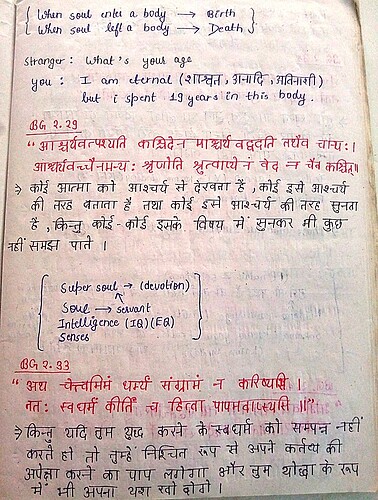 When soul enter a body → Birth
When soul left a body → Death
Stranger : What's your age
you : I am eternal (शाश्वत, अनादि, अविनाशी)
but i spent 19 years in this body.
BG 2.29
"आश्चर्यवत्पश्यति कश्चिदेन माश्चर्य वद्वदति तथैव चान्यः।
आश्चर्यवच्चैनमन्यः श्रृणोति श्रुत्वाप्येनं वेद न चैव कश्चित्॥
⇒ कोई आत्मा को आश्चर्य से देखता है, कोई इसे आश्चर्य
की तरह बताता है तथा कोई इसे आश्चर्य की तरह सुनता
है, किन्तु कोई-कोई इसके विषय में सुनकर भी कुछ
नहीं समझ पाते।
Super soul → (devotion)
Soul → servant
Intelligence (IQ) (EQ)
Senses
BG 2.33
"अथ चेत्त्वमिमं धर्म्यं संग्रामं न करिष्यसि।
ततः स्वधर्मं कीर्तिं च हित्वा पापमवाप्स्यसि॥"
⇒ किन्तु यदि तुम युद्ध करने के स्वधर्म को सम्पन्न नहीं
करते हो तो तुम्हें निश्चित रूप से अपने कर्तव्य की
अपेक्षा करने का पाप लगेगा और तुम योद्धा के रूप
में भी अपना यश खो दोगे।